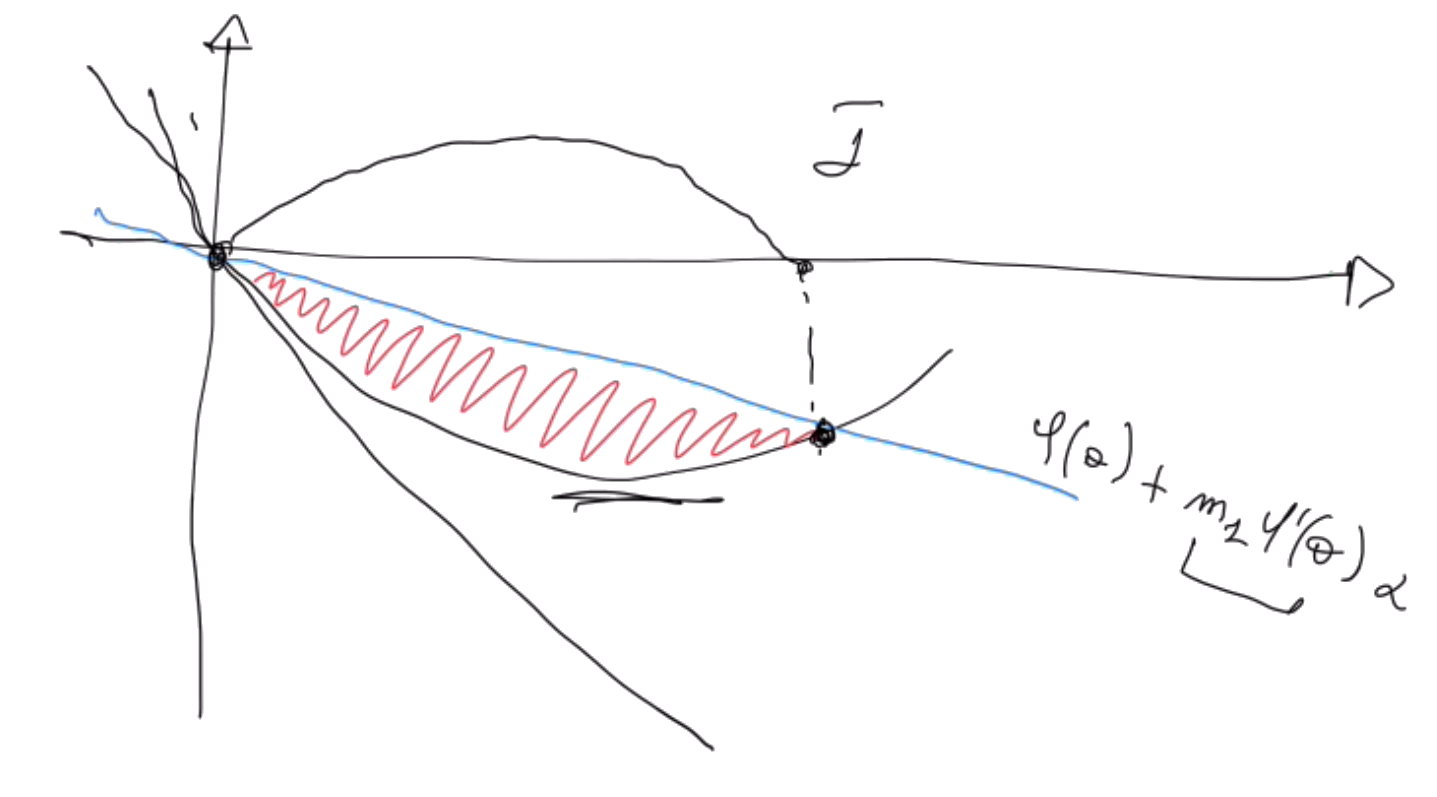 φ(0) + m₁ φ'(0) α